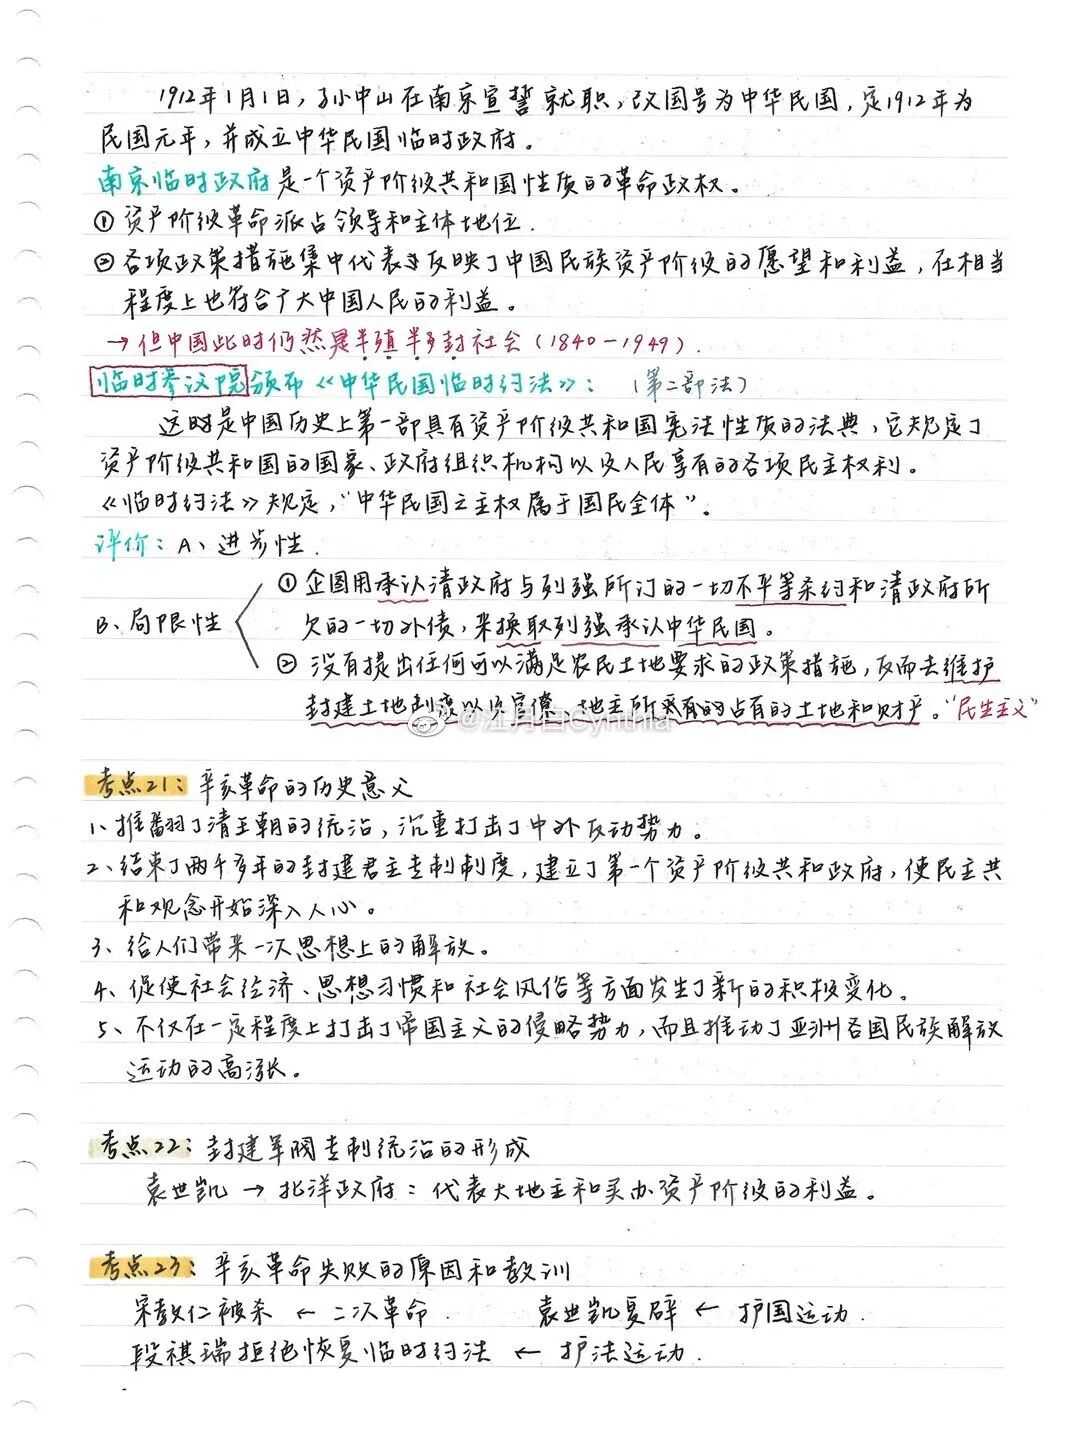 1912年1月1日，孙中山在南京宣誓就职，改国号为中华民国，定1912年为
民国元年，并成立中华民国临时政府。
南京临时政府是一个资产阶级共和国性质的革命政权。
① 资产阶级革命派占领导和主体地位.
② 各项政策措施集中代表与反映了中国民族资产阶级的愿望和利益，在相当
程度上也符合广大中国人民的利益。
→但中国此时仍然是半殖半封社会（1840-1949）.
临时参议院颁布《中华民国临时约法》：（第二部法）
这时是中国历史上第一部具有资产阶级共和国宪法性质的法典，它规定了
资产阶级共和国的国家、政府组织机构以及人民享有的各项民主权利。
《临时约法》规定，“中华民国之主权属于国民全体”。
评价：A、进步性.
① 企图用承认清政府与列强所订的一切不平等条约和清政府所
B、局限性
欠的一切外债，来换取列强承认中华民国。
② 没有提出任何可以满足农民土地要求的政策措施，反而去维护
封建土地制度以及官僚、地主所有的占有的土地和财产。“民生主义”
@江月白Cynthia
考点21：辛亥革命的历史意义
1、推翻了清王朝的统治，沉重打击了中外反动势力。
2、结束了两千多年的封建君主专制制度，建立了第一个资产阶级共和政府，使民主共
和观念开始深入人心。
3、给人们带来一次思想上的解放。
4、促使社会经济、思想习惯和社会风俗等方面发生了新的积极变化。
5、不仅在一定程度上打击了帝国主义的侵略势力，而且推动了亚洲各国民族解放
运动的高涨。
考点22：封建军阀专制统治的形成
袁世凯 → 北洋政府：代表大地主和买办资产阶级的利益。
考点23：辛亥革命失败的原因和教训
宋教仁被杀 ← 二次革命. 袁世凯复辟 ← 护国运动.
段祺瑞拒绝恢复临时约法 ← 护法运动.